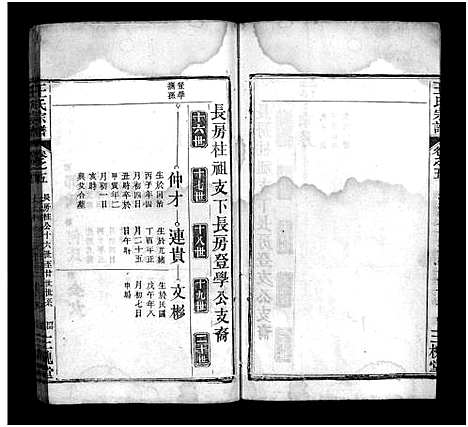 王氏宗譜
卷之五
三槐堂
長房柱祖支下長房登學公支裔
十六世
十七世
十八世
十九世
二十世
登學
仲才
連貴
文彬
生於同治
丙子年四
月初四日
丑時卒於
甲寅年二
月初一日
亥時
與父合墓
生於光緒
丁酉年正
月二十五
日午時
生於民國
戊午年八
月初七日
申時
王氏宗譜
卷之五
長房柱公十六世至廿世世系
三槐堂